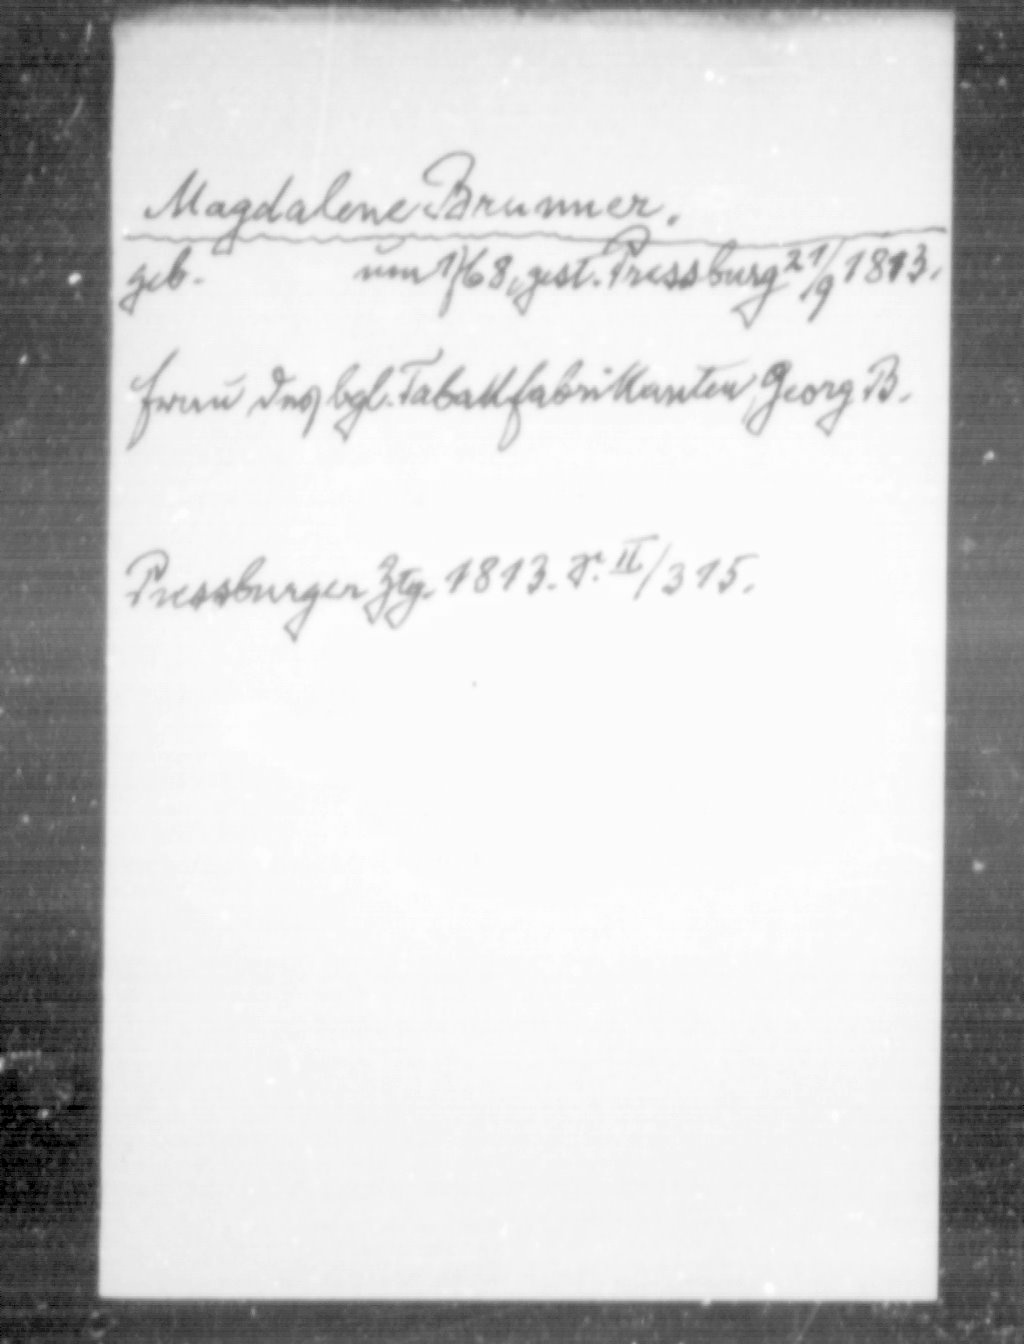 Magdalene Brunner.
geb. um 1768, gest. Pressburg 21/9 1813.
Frau des bgl. Tabakfabrikanten Georg B.
Pressburger Ztg. 1813. II/315.